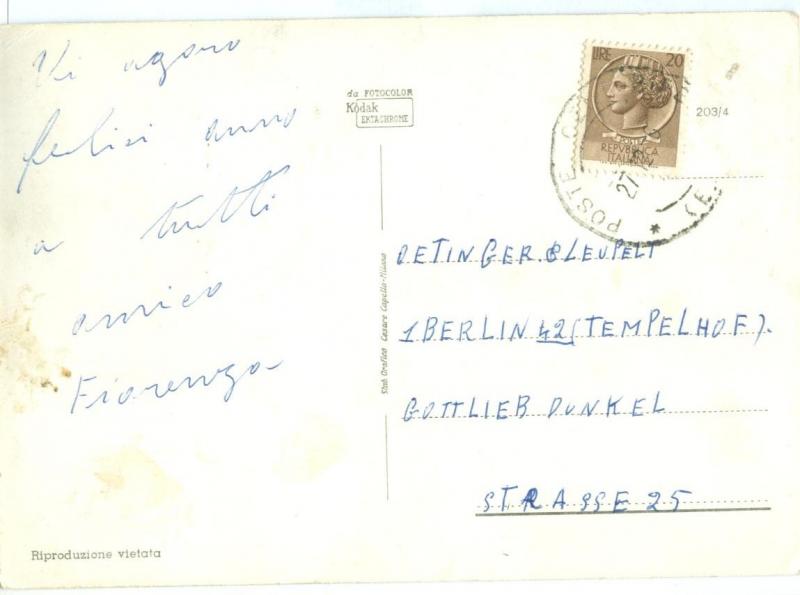 Vi aguro
felisi anno
a tutti
amico
Fiorenza
da FOTOCOLOR
Kodak
EKTACHROME
Stab. Grafico Cesare Capello-Milano
Riproduzione vietata
LIRE 20
REPVBBLICA
ITALIANA
POSTE
27
203/4
OETINGER & LEUPELT
1 BERLIN 42 (TEMPELHOF).
GOTTLIEB DUNKEL
STRASSE 25